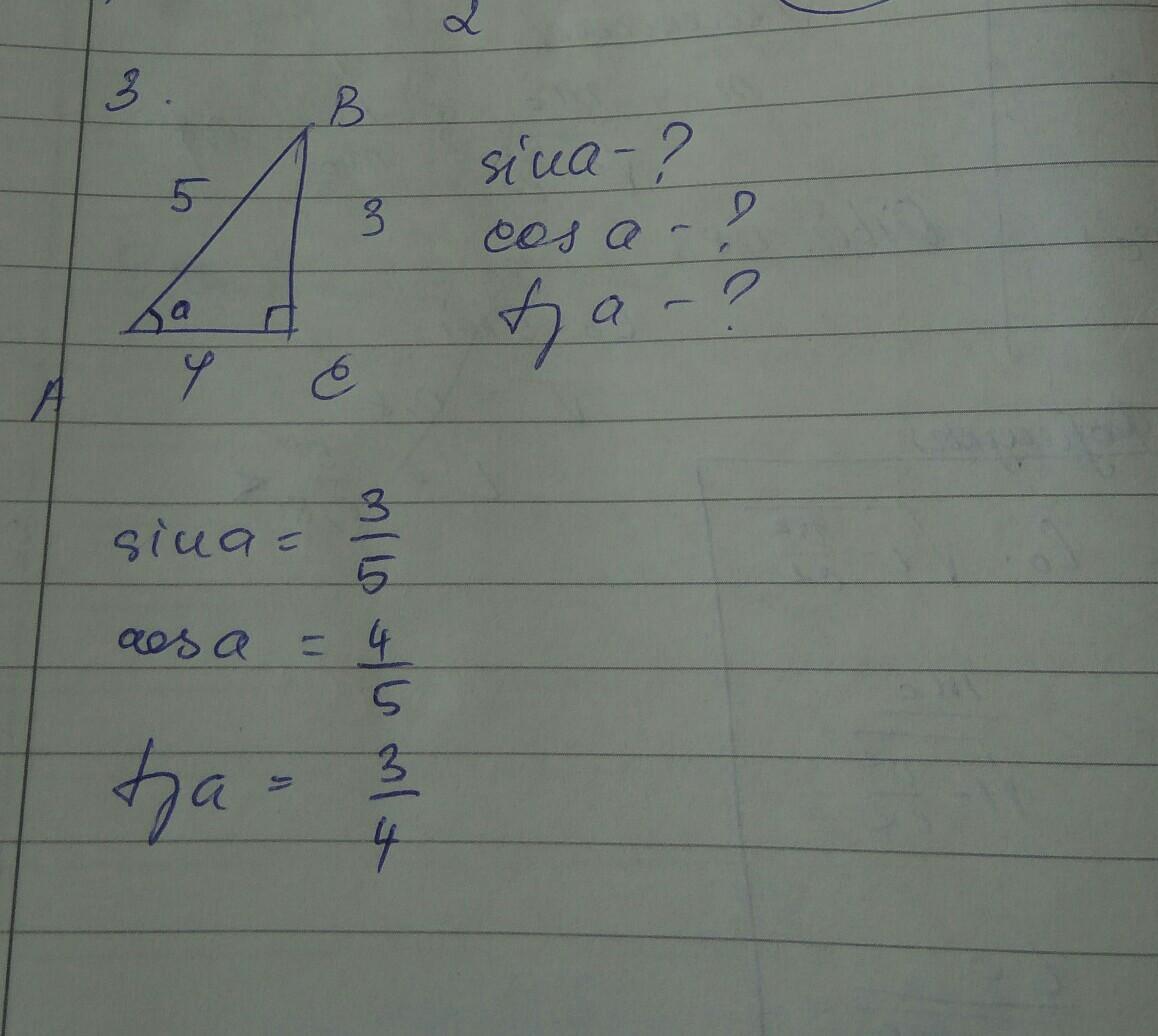 2
3.
B
5
3
a
4
C
A
sin a - ?
cos a - ?
tg a - ?
sin a = 3/5
cos a = 4/5
tg a = 3/4